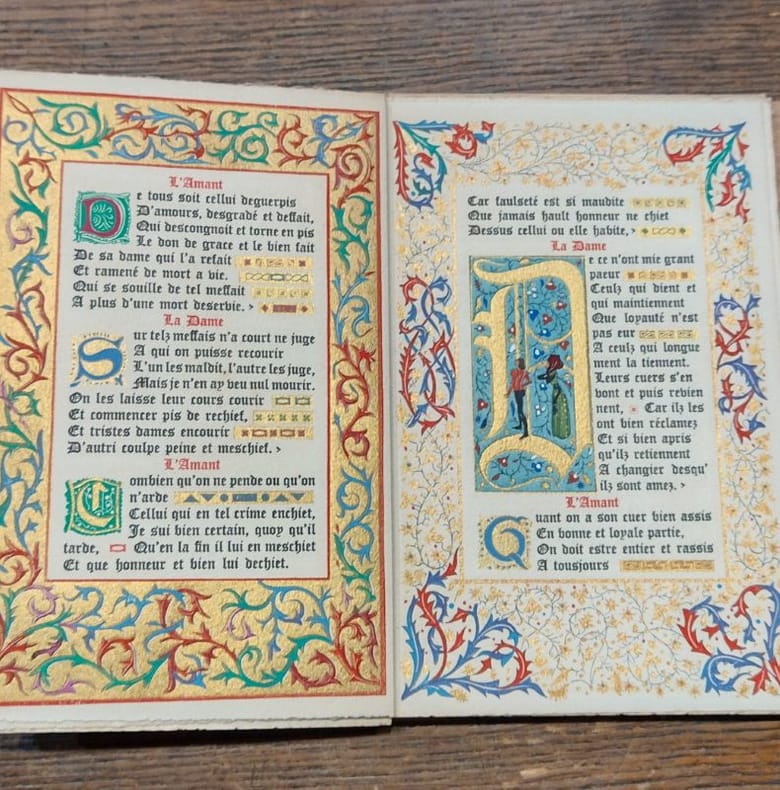 L'Amant
De tous soit cellui deguerpis
D'amours, desgradé et deffait,
Qui descongnoit et torne en pis
Le don de grace et le bien fait
De sa dame qui l'a refait
Et ramené de mort a bie.
Qui se souille de tel meffait
A plus d'une mort deserbie. ›
La Dame
Sur telz meffais n'a court ne juge
A qui on puisse recourir
L'un les maldit, l'autre les juge,
Mais je n'en ay veu nul mourir.
On les laisse leur cours courir
Et commencer pis de rechief,
Et tristes dames encourir
D'autri coulpe peine et meschief. ›
L'Amant
Combien qu'on ne pende ou qu'on
n'arde
Cellui qui en tel crime enchiet,
Je sui bien certain, quoy qu'il
tarde, Qu'en la fin il lui en meschiet
Et que honneur et bien lui dechiet.
Car faulseté est si maudite
Que jamais hault honneur ne chiet
Dessus cellui ou elle habite, ›
La Dame
De ce n'ont mie grant
paeur
Ceulz qui dient et
qui maintiennent
Que loyauté n'est
pas eur
A ceulz qui longue
ment la tiennent.
Leurs cuers s'en
bont et puis rebien
nent, Car ilz les
ont bien réclamez
Et si bien apris
qu'ilz retiennent
A changier desqu'
ilz sont amez. ›
L'Amant
Quant on a son cuer bien assis
En bonne et loyale partie,
On doit estre entier et rassis
A tousjours